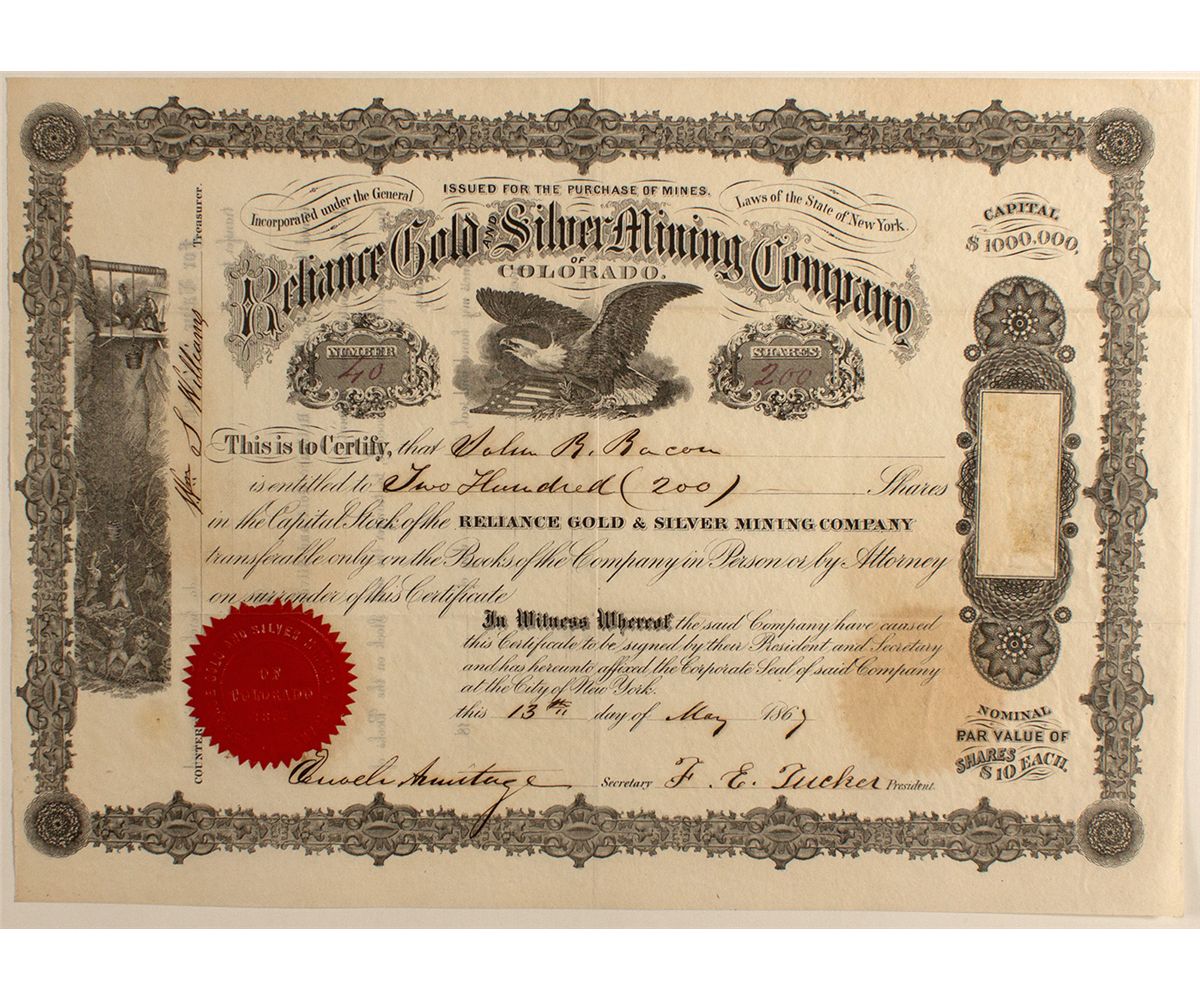 Incorporated under the General
ISSUED FOR THE PURCHASE OF MINES.
Laws of the State of New York.
Reliance Gold AND Silver Mining Company
OF
COLORADO.
CAPITAL
$1000.000,
NUMBER
40
SHARES
200
This is to Certify, that John R. Bacon
is entitled to Two Hundred (200) Shares
in the Capital Stock of the RELIANCE GOLD & SILVER MINING COMPANY
transferable only on the Books of the Company in Person or by Attorney
on surrender of this Certificate
In Witness Whereof the said Company have caused
this Certificate to be signed by their President and Secretary
and has hereunto affixed the Corporate Seal of said Company
at the City of New York.
this 13th day of May 1867
Enoch Armitage Secretary F. E. Tucker President.
COUNTER
Wm S Williams Treasurer.
GOLD AND SILVER
OF
COLORADO
NOMINAL
PAR VALUE OF
SHARES
$10 EACH.